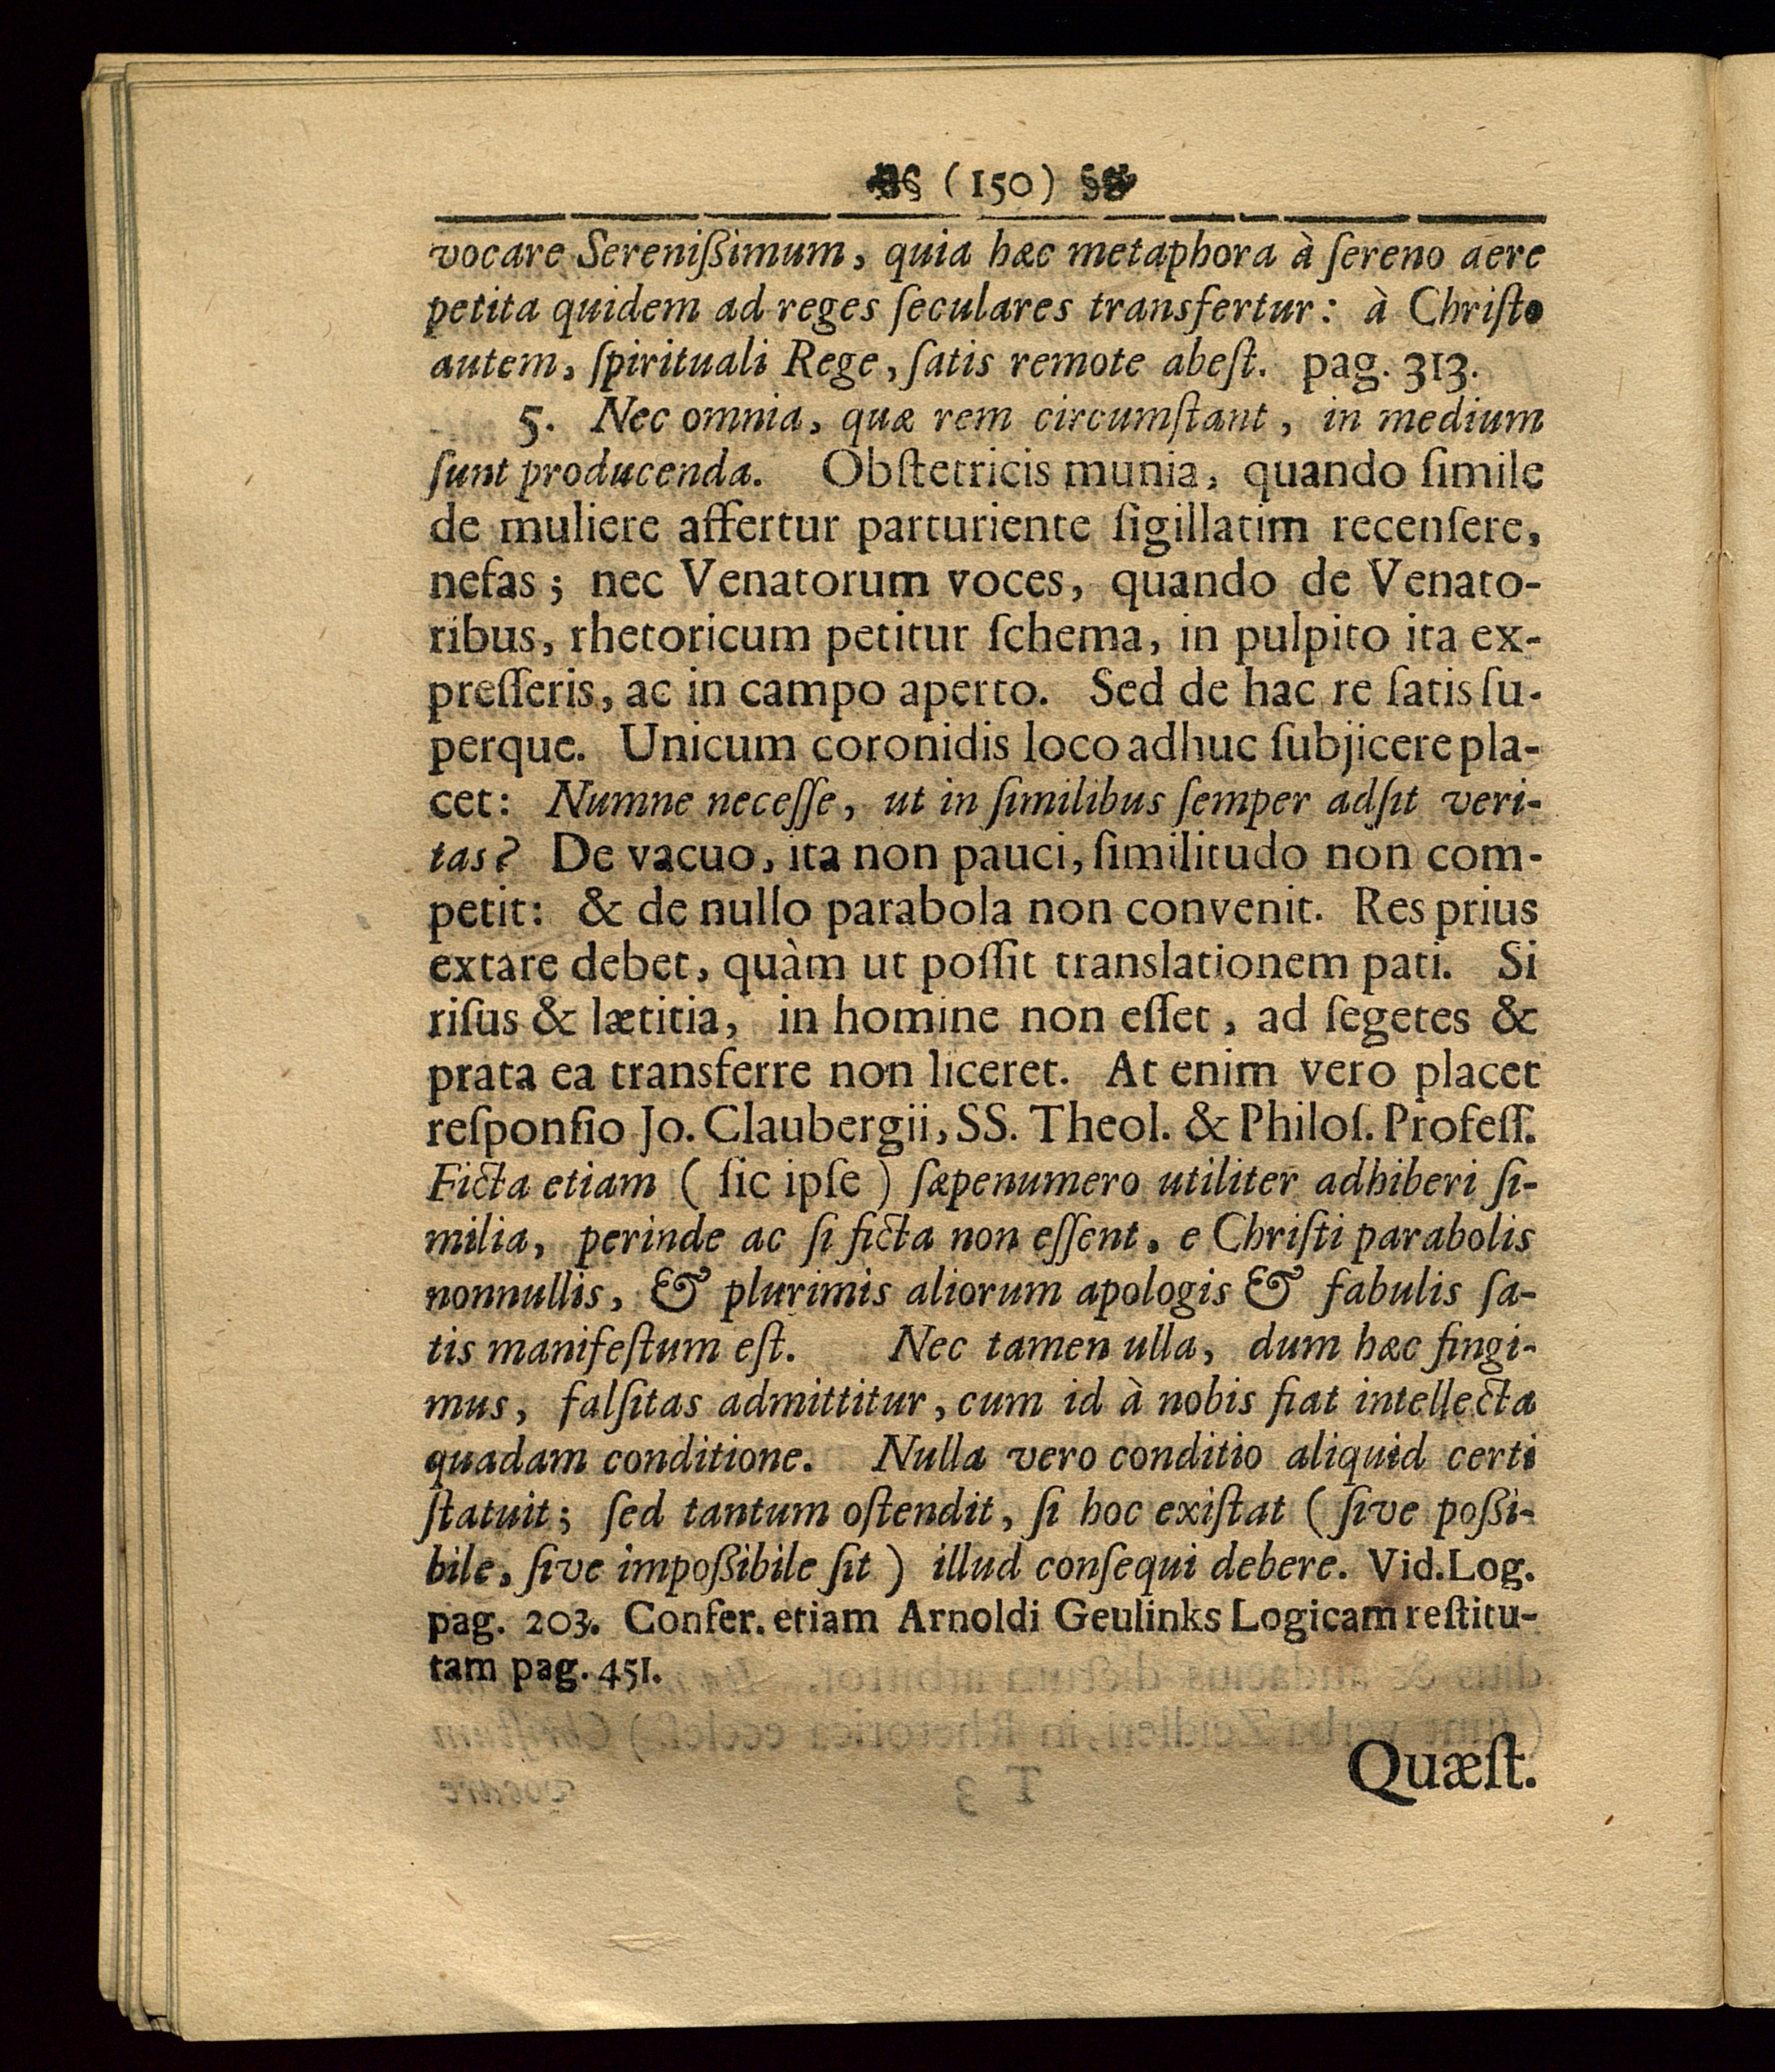 (150)
vocare Sereniſßimum, quia hæc metaphora à ſereno aëre
petita quidem ad reges ſeculares transfertur: à Chriſto
autem, ſpirituali Rege, ſatis remote abeſt. pag. 313.
5. Nec omnia, quæ rem circumſtant, in medium
ſunt producenda. Obſtetricis munia, quando ſimile
de muliere affertur parturiente ſigillatim recenſere,
nefas; nec Venatorum voces, quando de Venato-
ribus, rhetoricum petitur ſchema, in pulpito ita ex-
preſſeris, ac in campo aperto. Sed de hac re ſatis ſu-
perque. Unicum coronidis loco adhuc ſubjicere pla-
cet: Numne neceſſe, ut in ſimilibus ſemper adſit veri-
tas? De vacuo, ita non pauci, ſimilitudo non com-
petit: & de nullo parabola non convenit. Res prius
extare debet, quàm ut poſſit translationem pati. Si
riſus & lætitia, in homine non eſſet, ad ſegetes &
prata ea transferre non liceret. At enim vero placet
reſponſio Jo. Claubergii, SS. Theol. & Philoſ. Profeſſ.
Ficta etiam (ſic ipſe) ſæpenumero utiliter adhiberi ſi-
milia, perinde ac ſi ficta non eſſent, e Chriſti parabolis
nonnullis, & plurimis aliorum apologis & fabulis ſa-
tis manifeſtum eſt. Nec tamen ulla, dum hæc fingi-
mus, falſitas admittitur, cum id à nobis fiat intellecta
quadam conditione. Nulla vero conditio aliquid certi
ſtatuit; ſed tantum oſtendit, ſi hoc exiſtat (ſive poßi-
bile, ſive impoßibile ſit) illud conſequi debere. Vid. Log.
pag. 203. Confer. etiam Arnoldi Geulinks Logicam reſtitu-
tam pag. 451.
Quæſt.